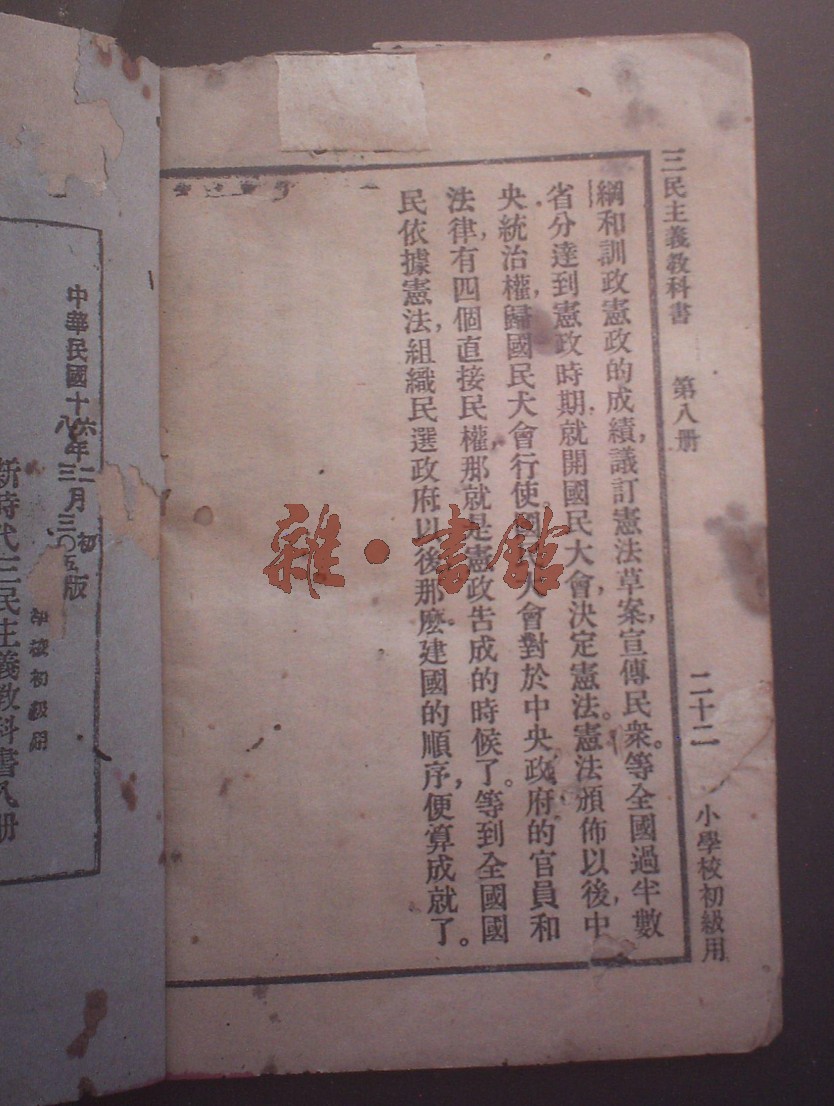 三民主義教科書 第八册 二十二 小學校初級用
綱和訓政憲政的成績，議訂憲法草案，宣傳民衆。等全國過半數
省分達到憲政時期，就開國民大會，決定憲法。憲法頒佈以後，中
央統治權，歸國民大會行使。國大會對於中央政府的官員和
法律，有四個直接民權，那就是憲政告成的時候了。等到全國國
民依據憲法，組織民選政府以後，那麽建國的順序，便算成就了。
雜·書館
中華民國十六年二月初版
八年三月三〇五版
初級用
新時代三民主義教科書八册